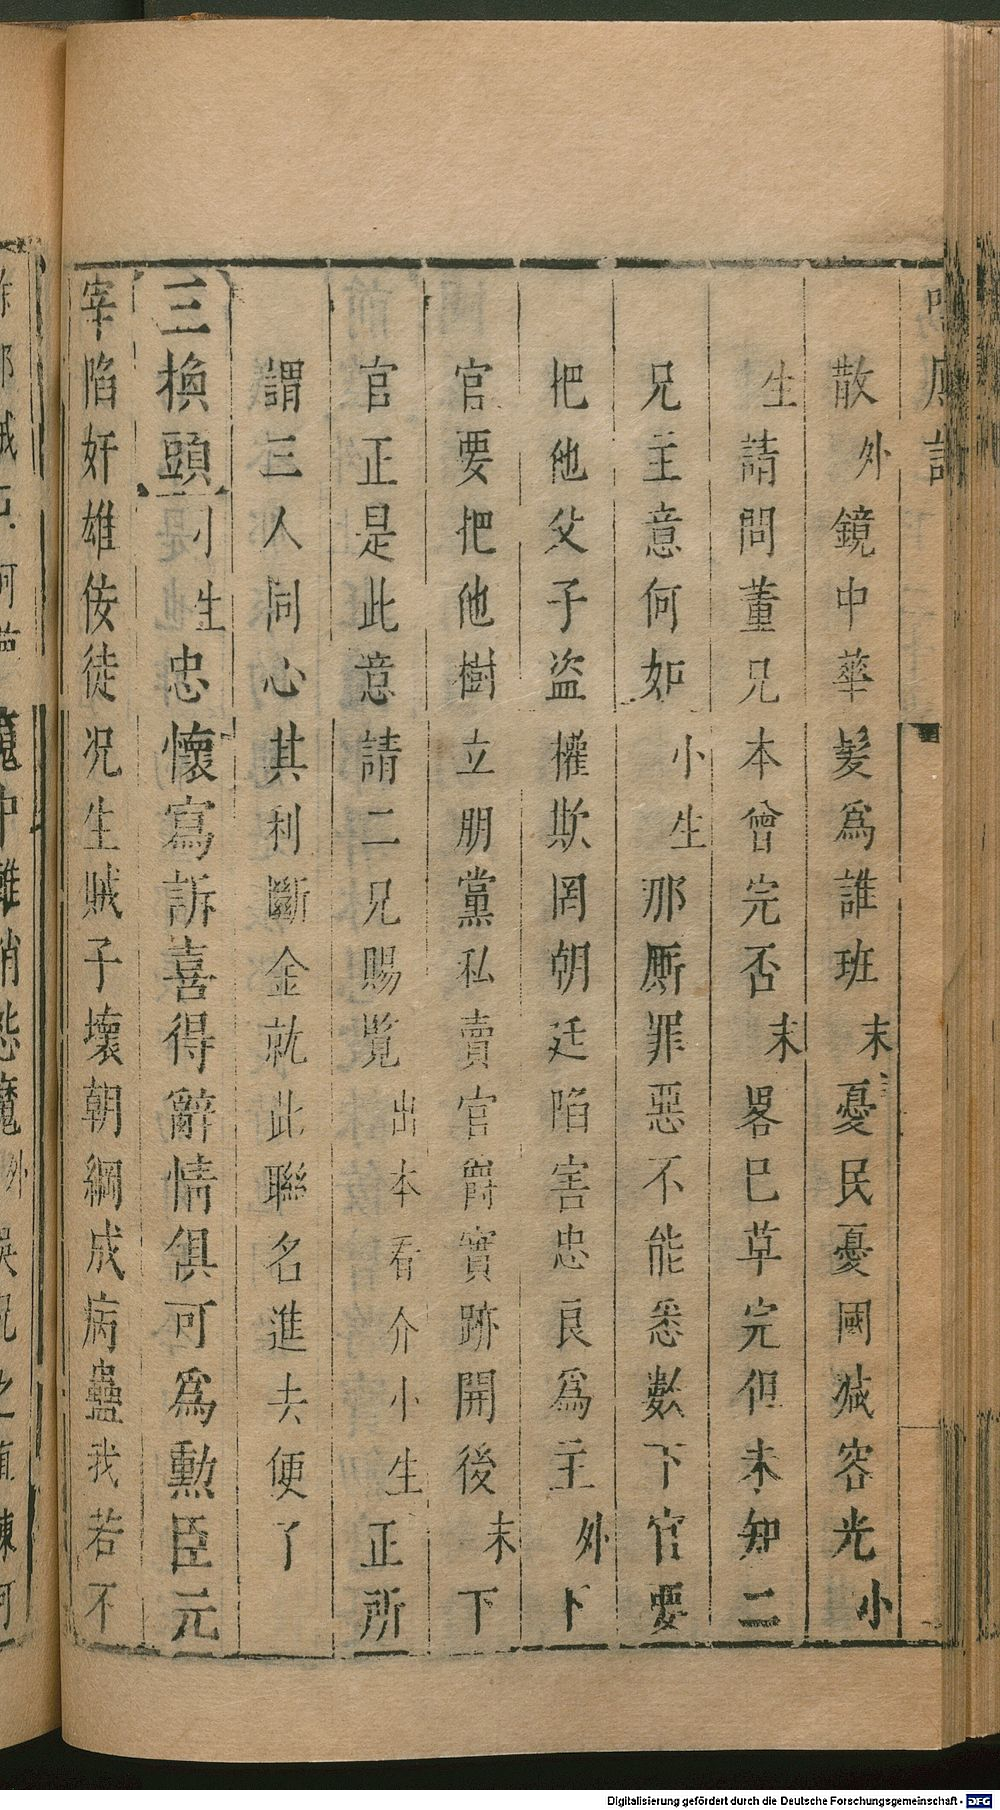 散外鏡中華髮爲誰班末憂民憂國減容光小
生請問董兄本曾完否末畧已草完但未知二
兄主意何如小生那厮罪惡不能悉數下官要
把他父子盜權欺罔朝廷陷害忠良爲主外下
官要把他樹立朋黨私賣官爵實跡開後末下
官正是此意請二兄賜覧出本看介小生正所
謂三人同心其利斷金就此聯名進去便了
三換頭小生忠懷寫訴喜得辭情俱可爲勳臣元
宰陷奸雄佞徒况生賊子壞朝綱成病蠱我若不
Digitalisierung gefördert durch die Deutsche Forschungsgemeinschaft - DFG